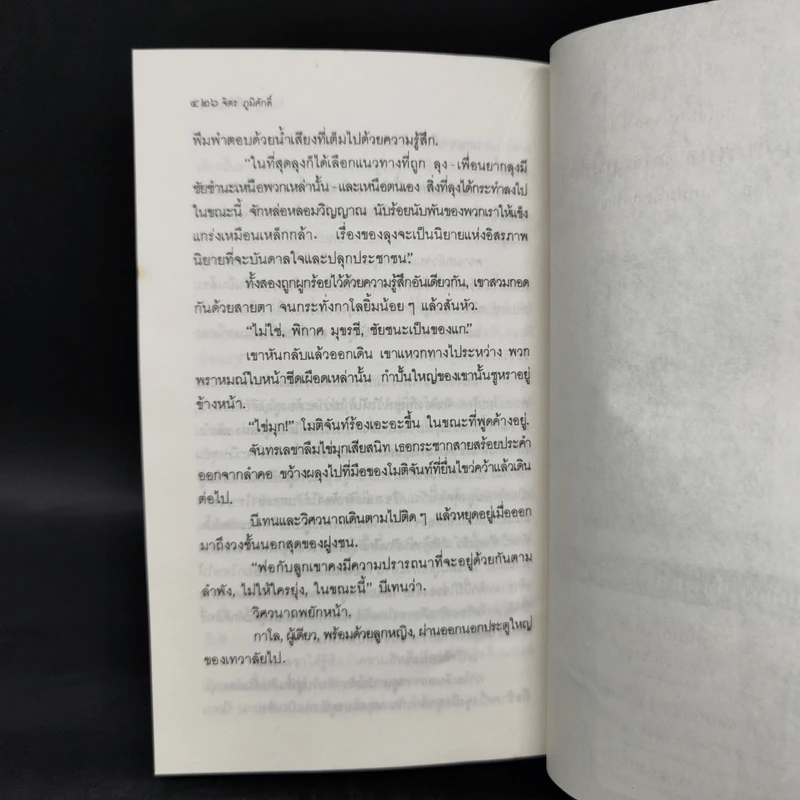 ๔๒๖ จิตร ภูมิศักดิ์
พึมพำตอบด้วยน้ำเสียงที่เต็มไปด้วยความรู้สึก.
"ในที่สุดลุงก็ได้เลือกแนวทางที่ถูก ลุง-เพื่อนยากลุงมี
ชัยชำนะเหนือพวกเหล่านั้น-และเหนือตนเอง สิ่งที่ลุงได้กระทำลงไป
ในขณะนี้ จักหล่อหลอมวิญญาณ นับร้อยนับพันของพวกเราให้แข็ง
แกร่งเหมือนเหล็กกล้า. เรื่องของลุงจะเป็นนิยายแห่งอิสรภาพ
นิยายที่จะบันดาลใจและปลุกประชาชน."
ทั้งสองถูกผูกร้อยไว้ด้วยความรู้สึกอันเดียวกัน, เขาสวมกอด
กันด้วยสายตา จนกระทั่งกาโลยิ้มน้อยๆ แล้วสั่นหัว.
"ไม่ใช่, พิกาศ มุขรชี, ชัยชนะเป็นของแก."
เขาหันกลับแล้วออกเดิน เขาแหวกทางไประหว่าง พวก
พราหมณ์ใบหน้าซีดเผือดเหล่านั้น กำปั้นใหญ่ของเขานั้นชูหราอยู่
ข้างหน้า.
"ไข่มุก!" โมติจันท์ร้องเอะอะขึ้น ในขณะที่พูดค้างอยู่.
จันทรเลขาลืมไข่มุกเสียสนิท เธอกระชากสายสร้อยประคำ
ออกจากลำคอ ขว้างผลุงไปที่มือของโมติจันท์ที่ยื่นไขว่คว้าแล้วเดิน
ต่อไป.
บีเทนและวิศวนาถเดินตามไปติดๆ แล้วหยุดอยู่เมื่อออก
มาถึงวงชั้นนอกสุดของฝูงชน.
"พ่อกับลูกเขาคงมีความปรารถนาที่จะอยู่ด้วยกันตาม
ลำพัง, ไม่ให้ใครยุ่ง, ในขณะนี้" บีเทนว่า.
วิศวนาถพยักหน้า.
กาโล, ผู้เดียว, พร้อมด้วยลูกหญิง, ผ่านออกนอกประตูใหญ่
ของเทวาลัยไป.